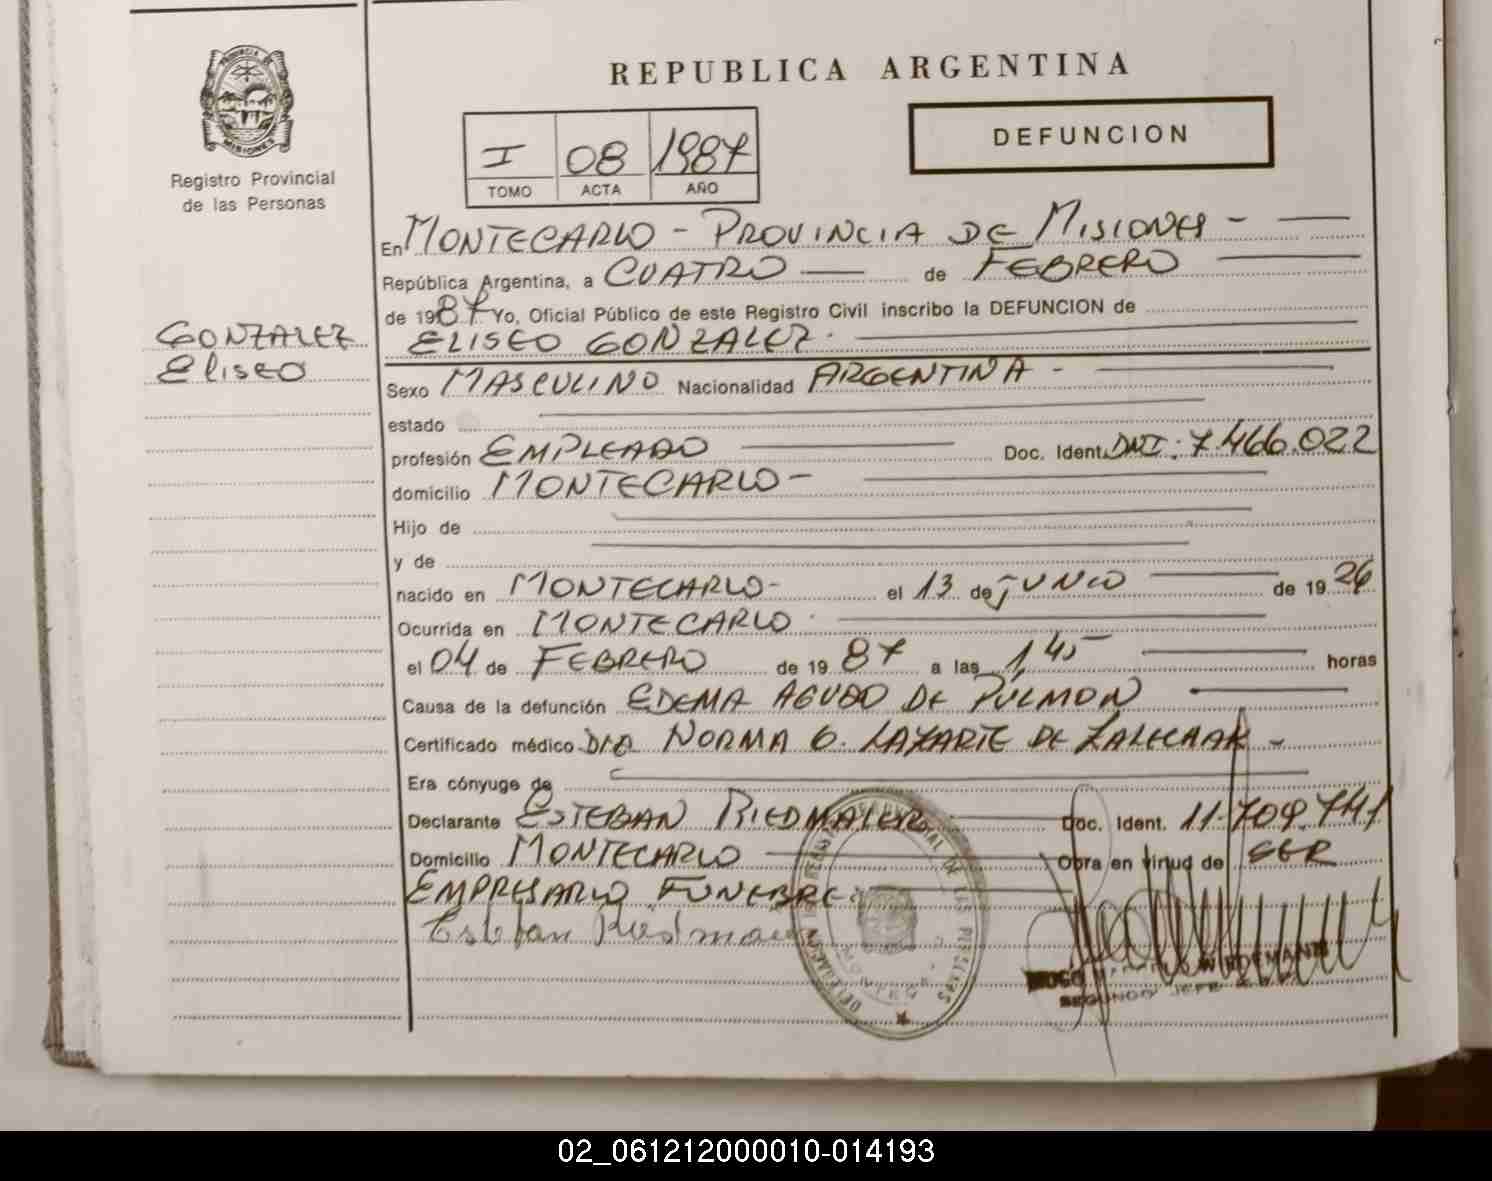 REPUBLICA ARGENTINA
PROVINCIA DE MISIONES
Registro Provincial
de las Personas
I 08 1987
TOMO ACTA AÑO
DEFUNCION
En MONTECARLO - PROVINCIA DE MISIONES -
República Argentina, a CUATRO de FEBRERO
de 1987 Yo, Oficial Público de este Registro Civil inscribo la DEFUNCION de
ELISEO GONZALEZ.
GONZALEZ
Eliseo
Sexo MASCULINO Nacionalidad ARGENTINA -
estado
profesión EMPLEADO Doc. Ident. DNI: 7.466.022
domicilio MONTECARLO -
Hijo de
y de
nacido en MONTECARLO - el 13 de JUNIO de 1926
Ocurrida en MONTECARLO.
el 04 de FEBRERO de 1987 a las 1,45 horas
Causa de la defunción EDEMA AGUDO DE PULMON
Certificado médico Dra NORMA G. LAZARTE DE -
Era cónyuge de
Declarante ESTEBAN RIEDMAIER Doc. Ident. 11.709.741
Domicilio MONTECARLO Obra en virtud de SER
EMPRESARIO FUNEBRE.
Esteban Riedmaier
SEGUNDO JEFE
02_061212000010-014193